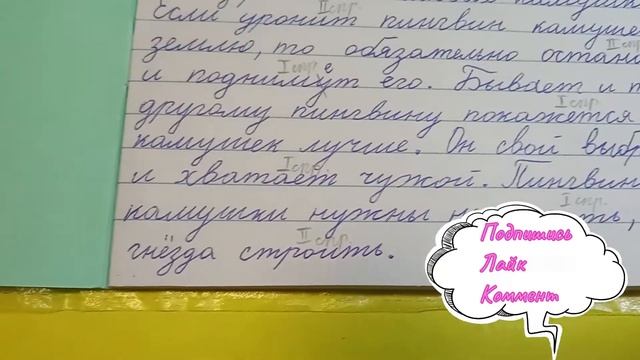 II спр.
Если уронит пингвин камуше
землю, то обязательно остан
I спр. е
и его. Бывает и т
I спр.
другому пингвину покажется
камушек лучше. Он свой выбр
I спр.
и хватает чужой. Пингвин
I спр.
камушки нужны
II спр.
гнёзда строить.
Подпишись
Лайк
Коммент